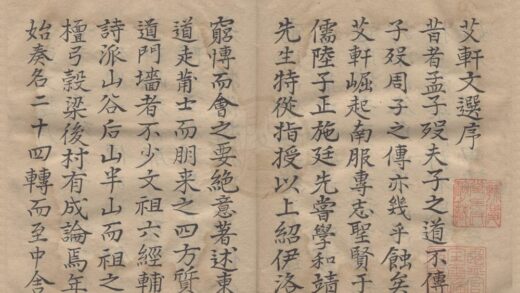 艾軒文選序
昔者孟子歿夫子之道不傳
子歿周子之傳亦幾乎蝕矣
艾軒崛起南服專志聖賢于
儒陸子正施廷先嘗學和靖
先生特從指授以上紹伊洛
窮博而會之要絕意著述東
道走莆士而朋來之四方質
道門墻者不少文祖六經輔
詩派山谷后山半山而祖之
檀弓穀梁後村有成論焉年
始奏名二十四轉而至中舍